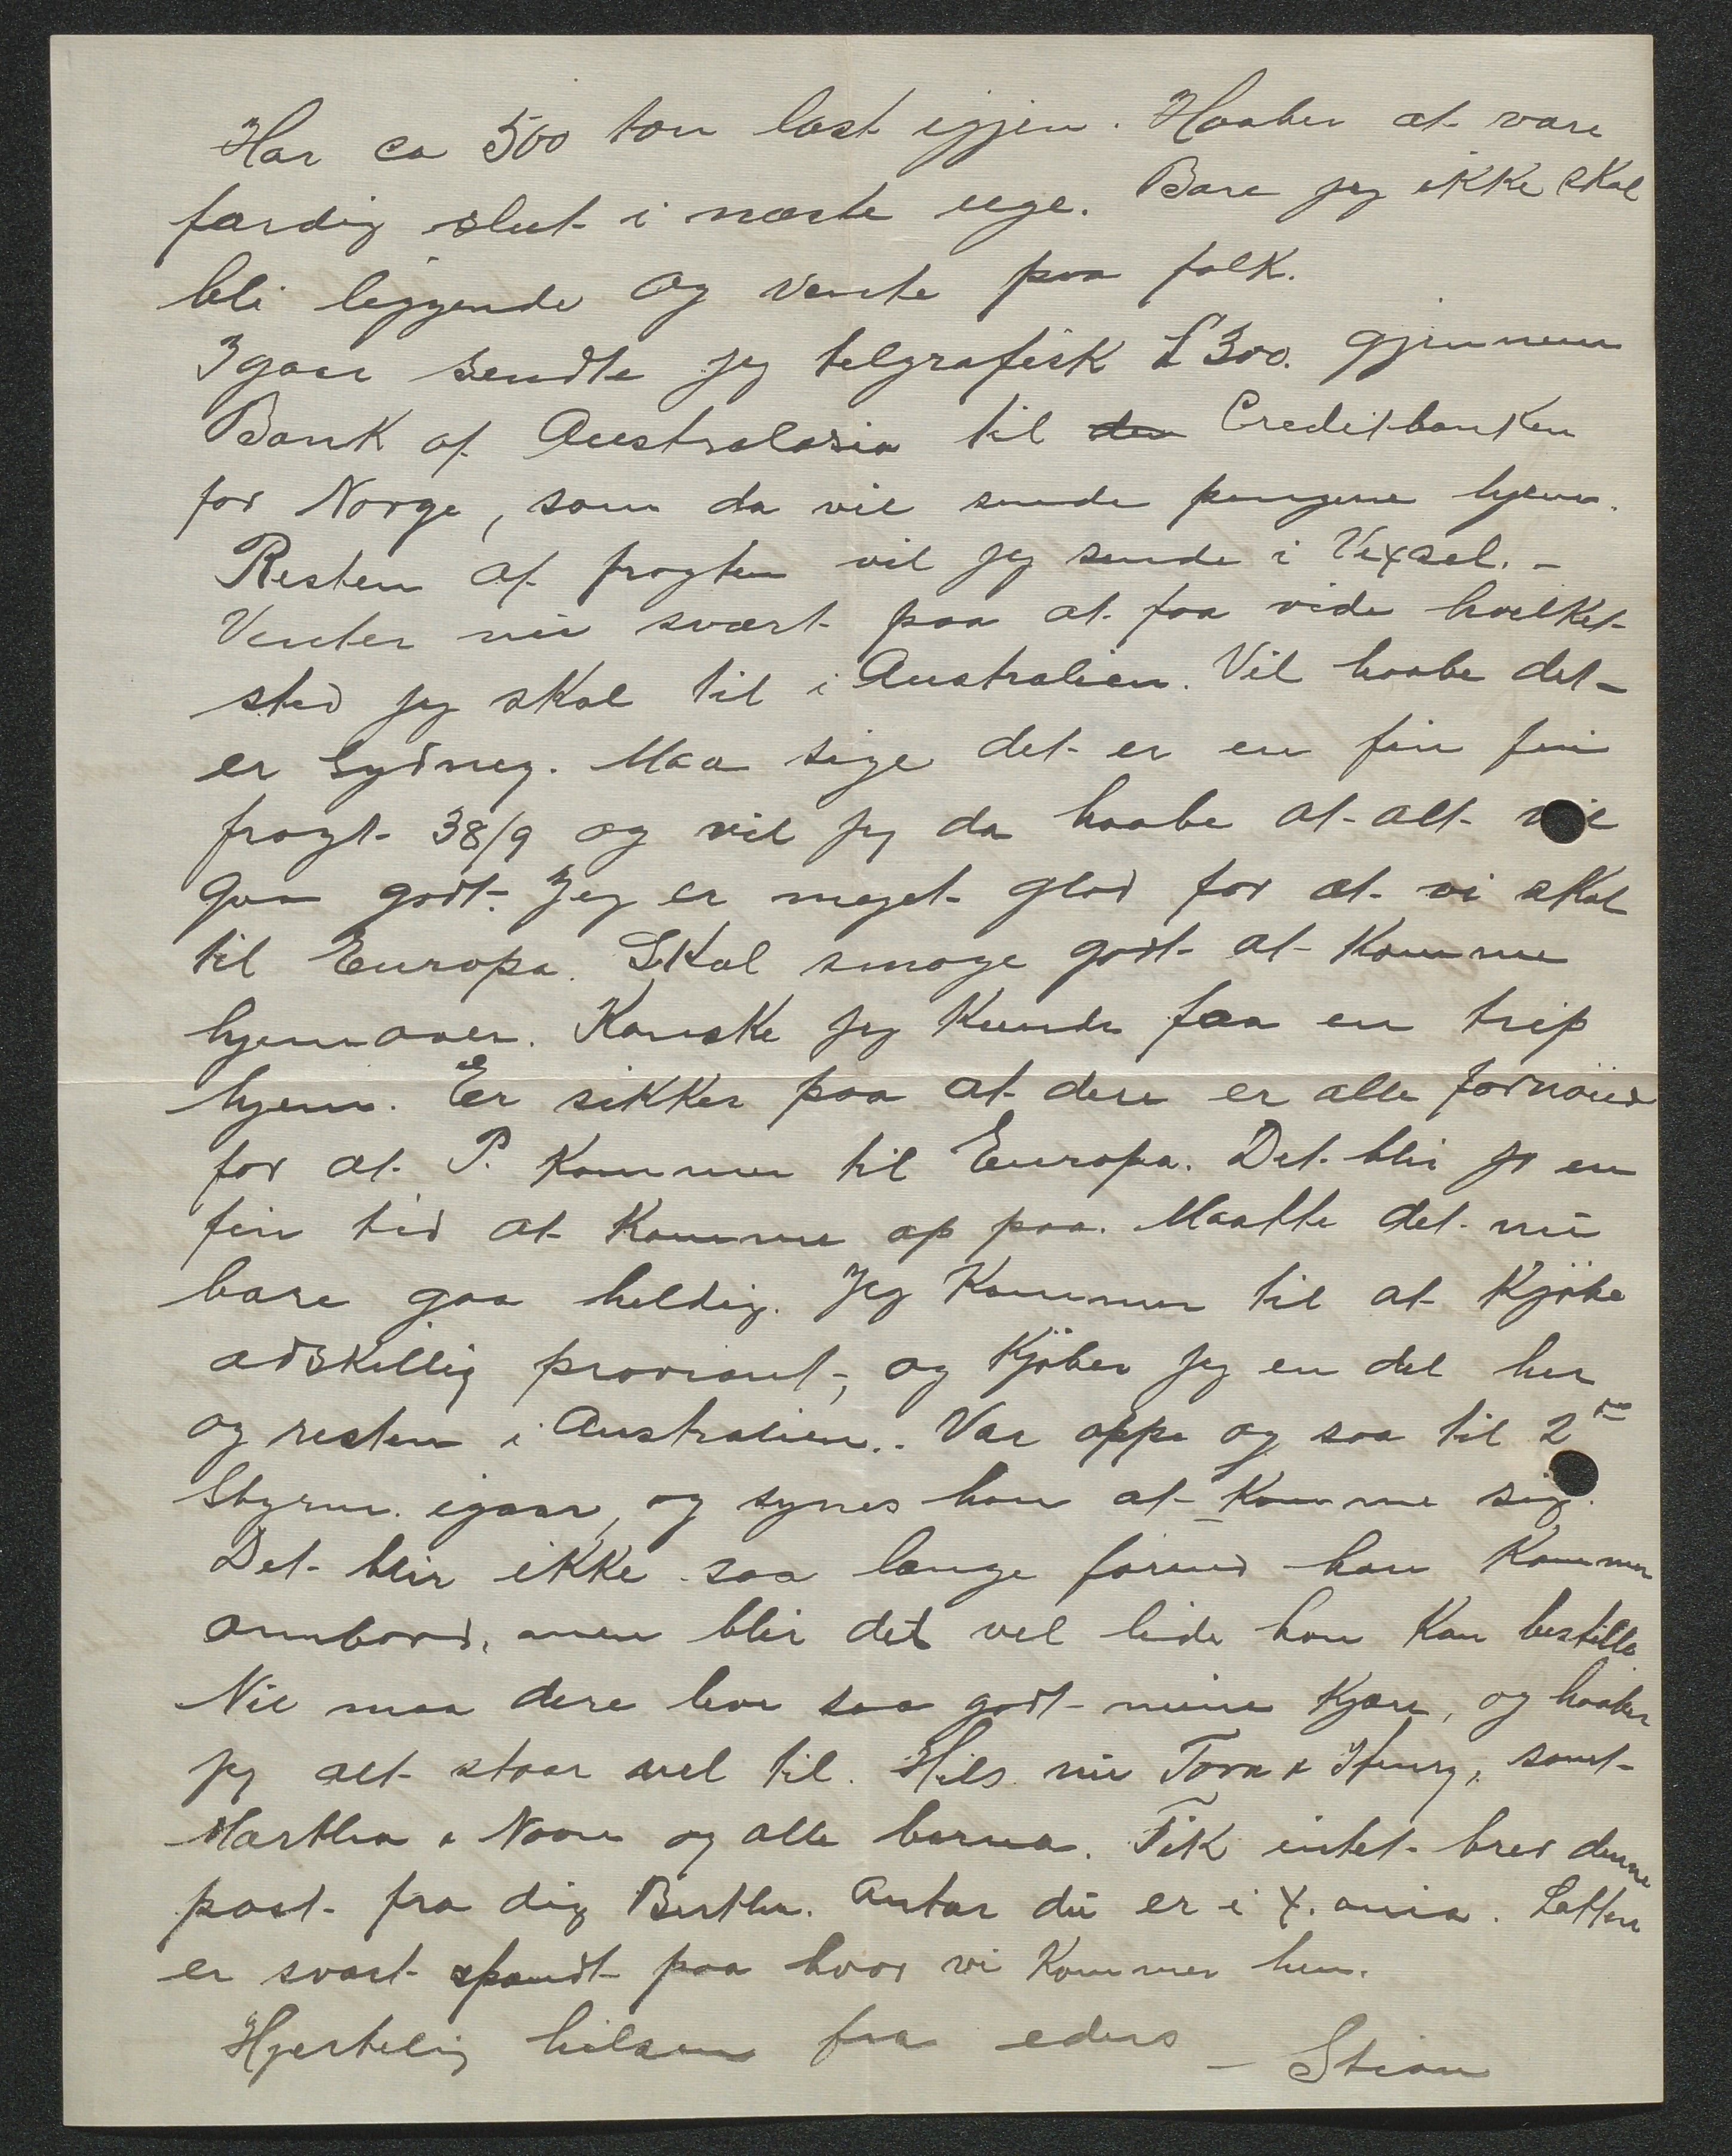 Har ca 500 ton last igjen. Haaber at være
færdig slut i næste uge. Bare jeg ikke skal
bli liggende og vente paa folk.
Igaar sendte jeg telgrafisk £300. gjennem
Bank of Australasia til den Creditbanken
for Norge, som da vil sende pengene hjem.
Resten af fragten vil jeg sende i Vexsel. -
Venter nu svært paa at faa vide hvilket
sted jeg skal til i Australien. Vil haabe det
er Sydney. Maa sige det er en fin fin
fragt 38/9 og vil jeg da haabe at alt vil
gaa godt. Jeg er meget glad for at vi skal
til Europa. Skal smage godt at komme
hjemover. Kanske jeg kunde faa en trip
hjem. Er sikker paa at dere er alle fornøied
for at P. kommer til Europa. Det blir jo en
fin tid at komme op paa. Maatte det nu
bare gaa heldig. Jeg kommer til at kjøbe
adskillig proviant, og kjøber jeg en del her
og resten i Australien.. Var oppe og saa til 2
Styrm. igaar, og synes han at komme sig.
Det blir ikke saa længe førend han kommer
ombord, men blir det vel lide han kan bestille
Nu maa dere leve saa godt mine kjære, og haaber
jeg alt staar vel til. Hils nu Tora & Henry, samt
Martha & Noon og alle barna. Fik intet brev denne
post fra dig Berthe. Antar du er i X.ania. Latten
er svært spændt paa hvor vi kommer hen.
Hjertelig hilsen fra eders - Stian